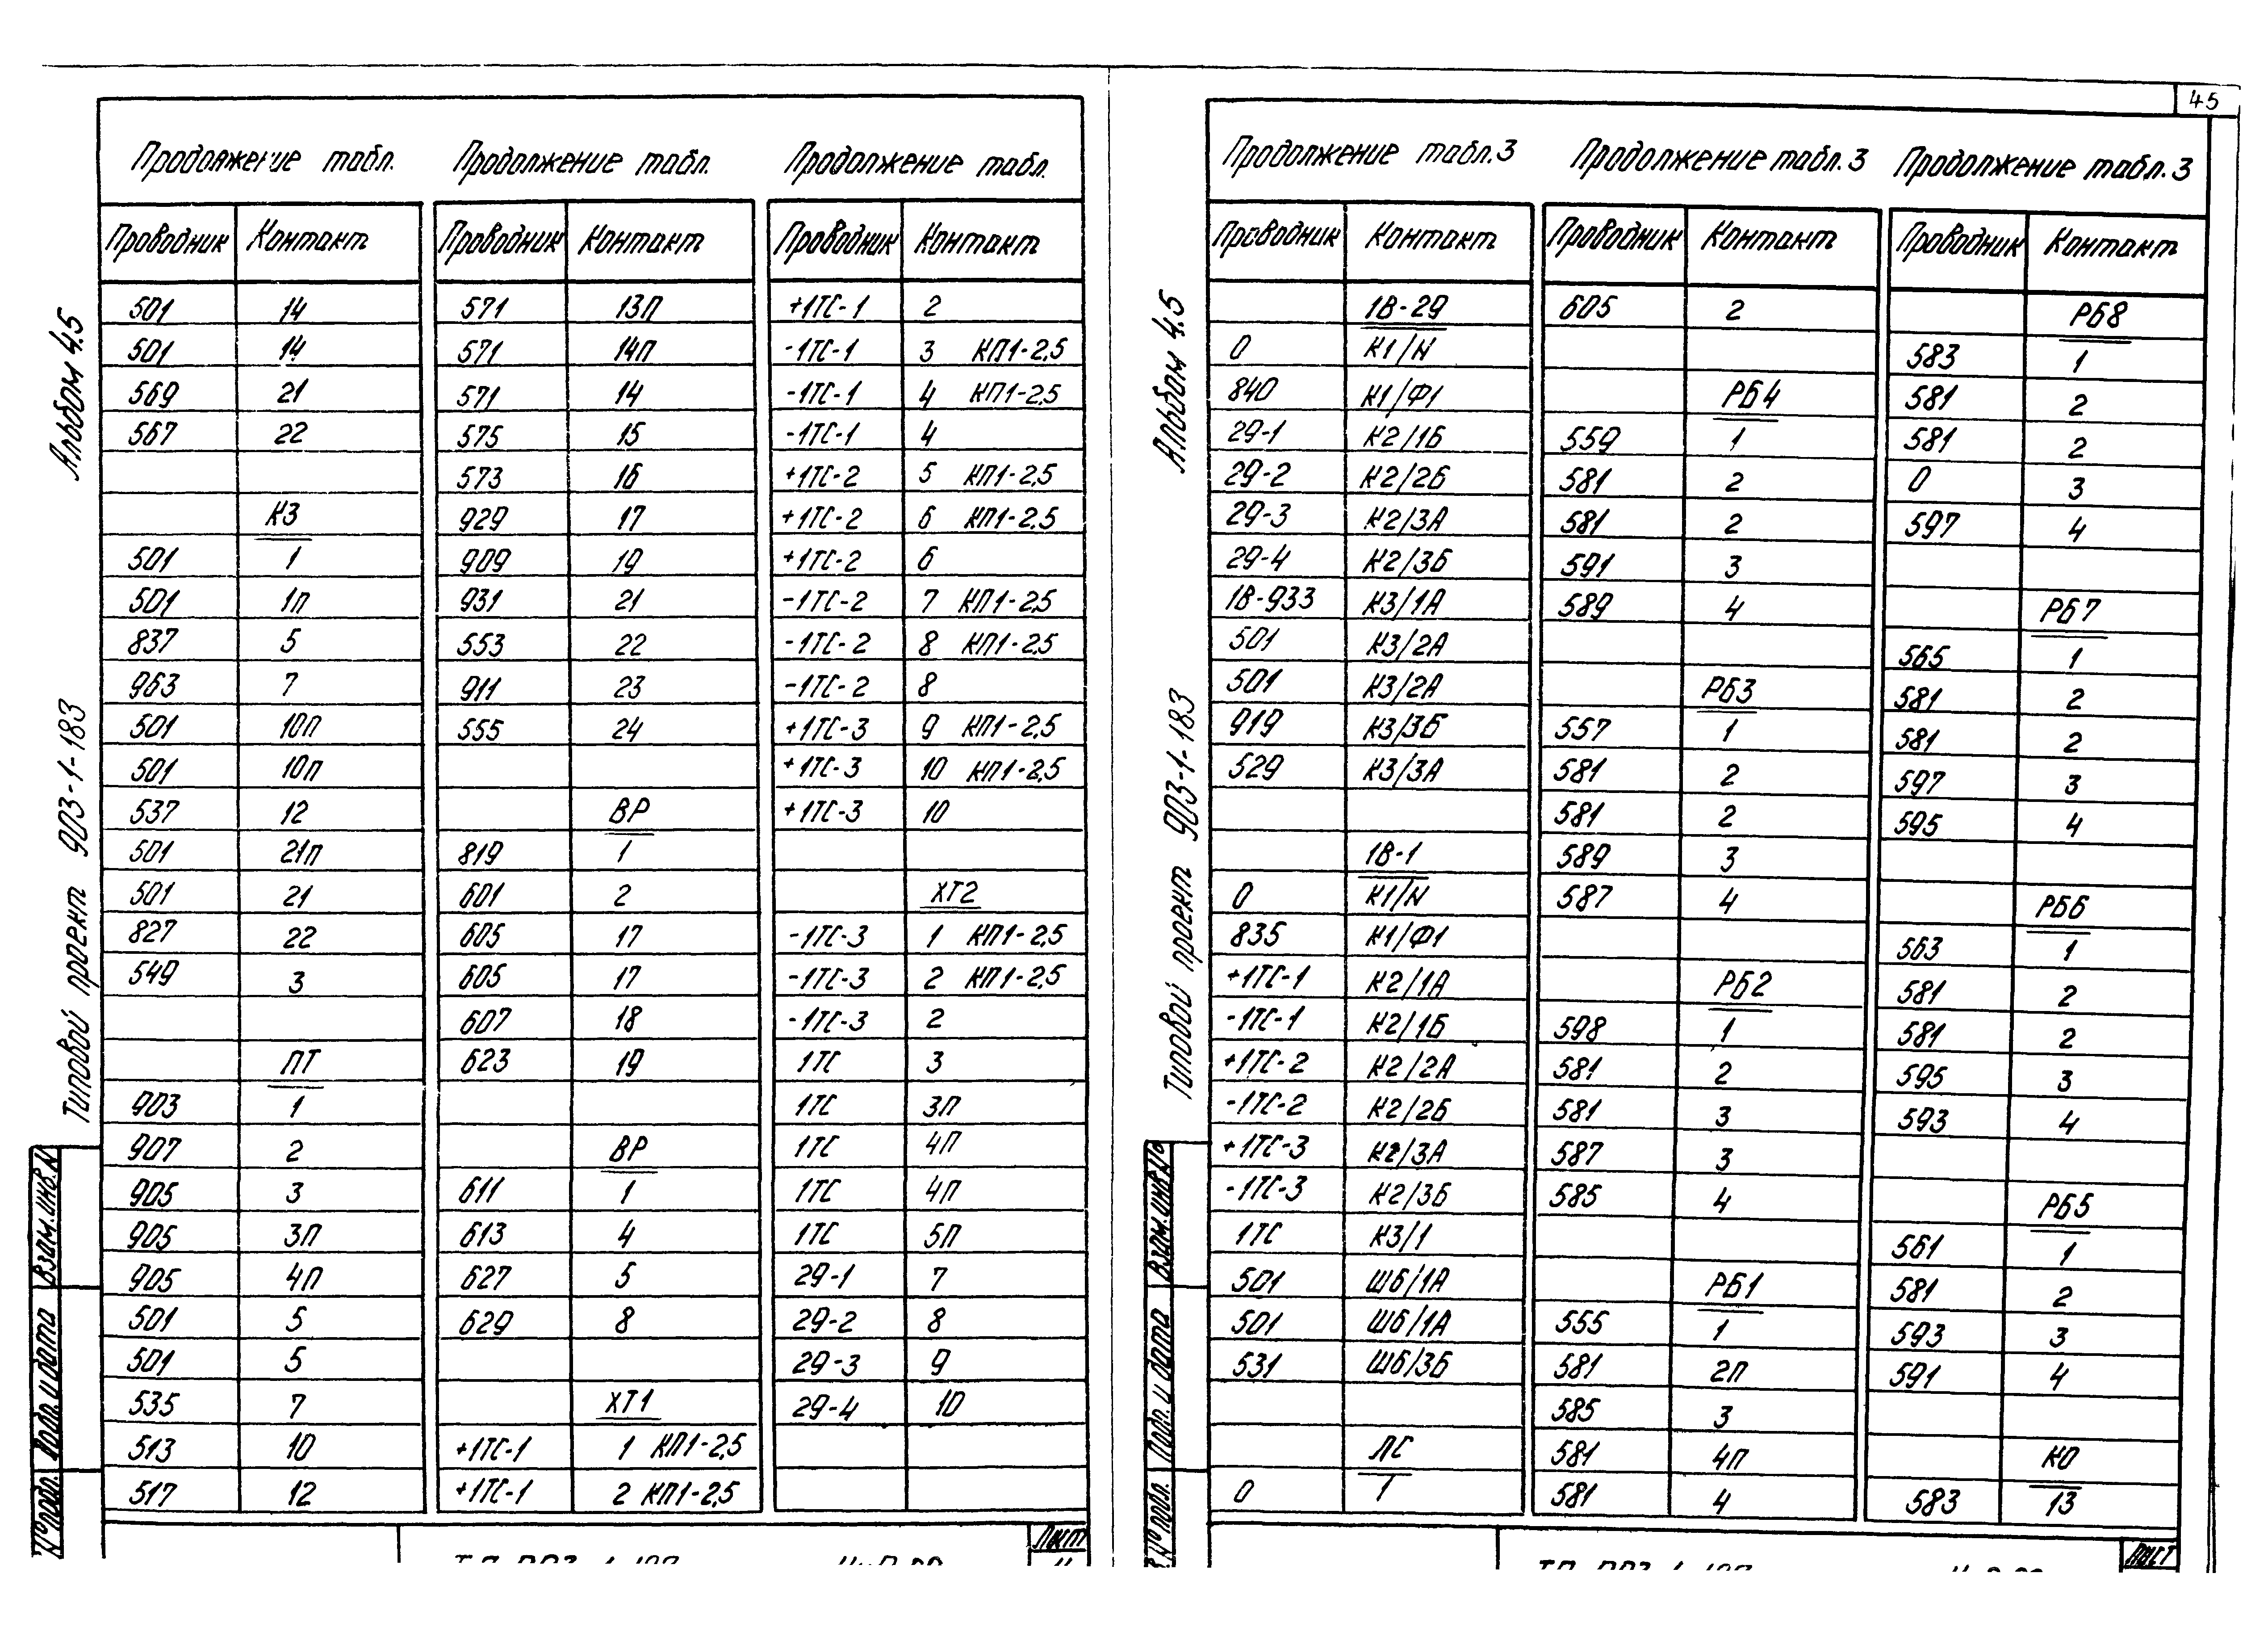 45
Альбом 4.5
Типовой проект 903-1-183
Взам.инв.N
Подп. и дата
N°подл.
Продолжение табл.
Проводник Контакт
501 14
501 14
569 21
567 22
К3
501 1
501 1п
837 5
963 7
501 10п
501 10п
537 12
501 21п
501 21
827 22
549 3
ПТ
903 1
907 2
905 3
905 3П
905 4П
501 5
501 5
535 7
513 10
517 12
Продолжение табл.
Проводник Контакт
571 13П
571 14П
571 14
575 15
573 16
929 17
909 19
931 21
553 22
911 23
555 24
ВР
819 1
601 2
605 17
605 17
607 18
623 19
ВР
611 1
613 4
627 5
629 8
ХТ1
+1ТС-1 1 КП1-2,5
+1ТС-1 2 КП1-2,5
Продолжение табл.
Проводник Контакт
+1ТС-1 2
-1ТС-1 3 КП1-2,5
-1ТС-1 4 КП1-2,5
-1ТС-1 4
+1ТС-2 5 КП1-2,5
+1ТС-2 6 КП1-2,5
+1ТС-2 6
-1ТС-2 7 КП1-2,5
-1ТС-2 8 КП1-2,5
-1ТС-2 8
+1ТС-3 9 КП1-2,5
+1ТС-3 10 КП1-2,5
+1ТС-3 10
ХТ2
-1ТС-3 1 КП1-2,5
-1ТС-3 2 КП1-2,5
-1ТС-3 2
1ТС 3
1ТС 3П
1ТС 4П
1ТС 4П
1ТС 5П
29-1 7
29-2 8
29-3 9
29-4 10
Лист
Альбом 4.5
Типовой проект 903-1-183
Взам.инв.N°
Подп. и дата
N°подл.
Продолжение табл.3
Проводник Контакт
1В-29
0 К1/N
840 К1/Ф1
29-1 К2/1Б
29-2 К2/2Б
29-3 К2/3А
29-4 К2/3Б
1В-933 К3/1А
501 К3/2А
501 К3/2А
919 К3/3Б
529 К3/3А
1В-1
0 К1/N
835 К1/Ф1
+1ТС-1 К2/1А
-1ТС-1 К2/1Б
+1ТС-2 К2/2А
-1ТС-2 К2/2Б
+1ТС-3 К2/3А
-1ТС-3 К2/3Б
1ТС К3/1
501 Ш6/1А
501 Ш6/1А
531 Ш6/3Б
ЛС
0 1
Продолжение табл.3
Проводник Контакт
605 2
РБ4
559 1
581 2
581 2
591 3
589 4
РБ3
557 1
581 2
581 2
589 3
587 4
РБ2
598 1
581 2
581 3
587 3
585 4
РБ1
555 1
581 2П
585 3
581 4П
581 4
Продолжение табл.3
Проводник Контакт
РБ8
583 1
581 2
581 2
0 3
597 4
РБ7
565 1
581 2
581 2
597 3
595 4
РБ6
563 1
581 2
581 2
595 3
593 4
РБ5
561 1
581 2
593 3
591 4
КО
583 13
Лист